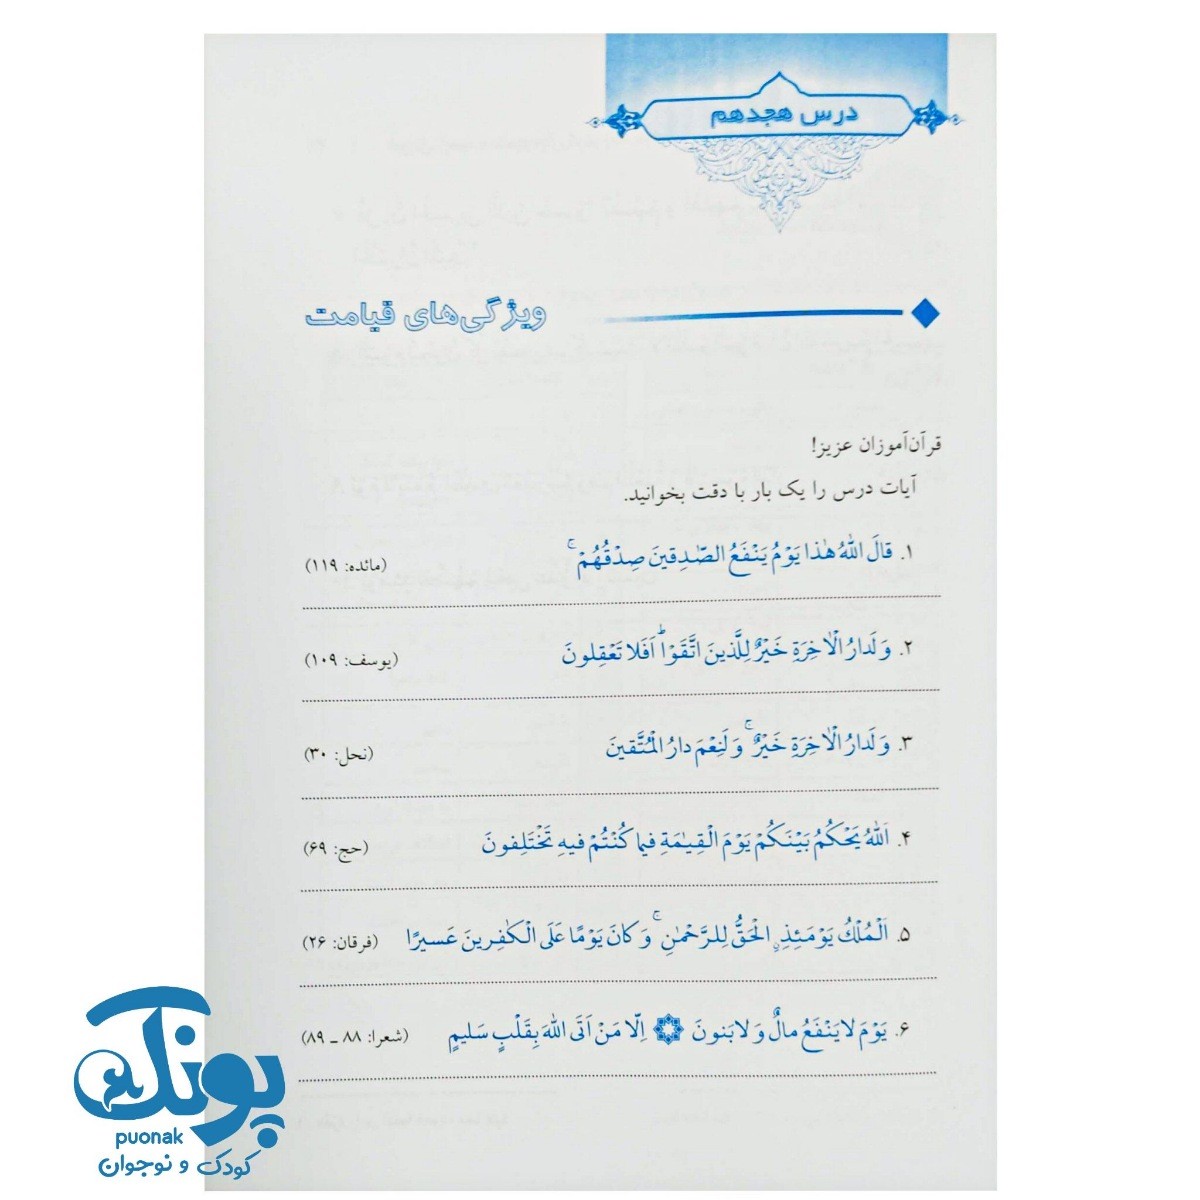 درس هجدهم
ویژگی‌های قیامت
قرآن‌آموزان عزیز!
آیات درس را یک بار با دقت بخوانید.
۱. قالَ اللّٰهُ هٰذا يَوْمُ يَنْفَعُ الصّٰدِقينَ صِدْقُهُمْ ۚ (مائده: ۱۱۹)
۲. وَ لَدارُ الْاٰخِرَةِ خَيْرٌ لِلَّذينَ اتَّقَوْا ۗ اَفَلا تَعْقِلونَ (یوسف: ۱۰۹)
۳. وَ لَدارُ الْاٰخِرَةِ خَيْرٌ ۚ وَ لَنِعْمَ دارُ الْمُتَّقينَ (نحل: ۳۰)
۴. اَللّٰهُ يَحْكُمُ بَيْنَكُمْ يَوْمَ الْقِيٰمَةِ فيما كُنْتُمْ فيهِ تَخْتَلِفونَ (حج: ۶۹)
۵. اَلْمُلْكُ يَوْمَئِذٍ الْحَقُّ لِلرَّحْمٰنِ ۚ وَ كانَ يَوْمًا عَلَى الْكٰفِرينَ عَسيرًا (فرقان: ۲۶)
۶. يَوْمَ لا يَنْفَعُ مالٌ وَ لا بَنونَ ۞ اِلّا مَنْ اَتَى اللّٰهَ بِقَلْبٍ سَليمٍ (شعرا: ۸۸ ـ ۸۹)
پونک
puonak
کودک و نوجوان